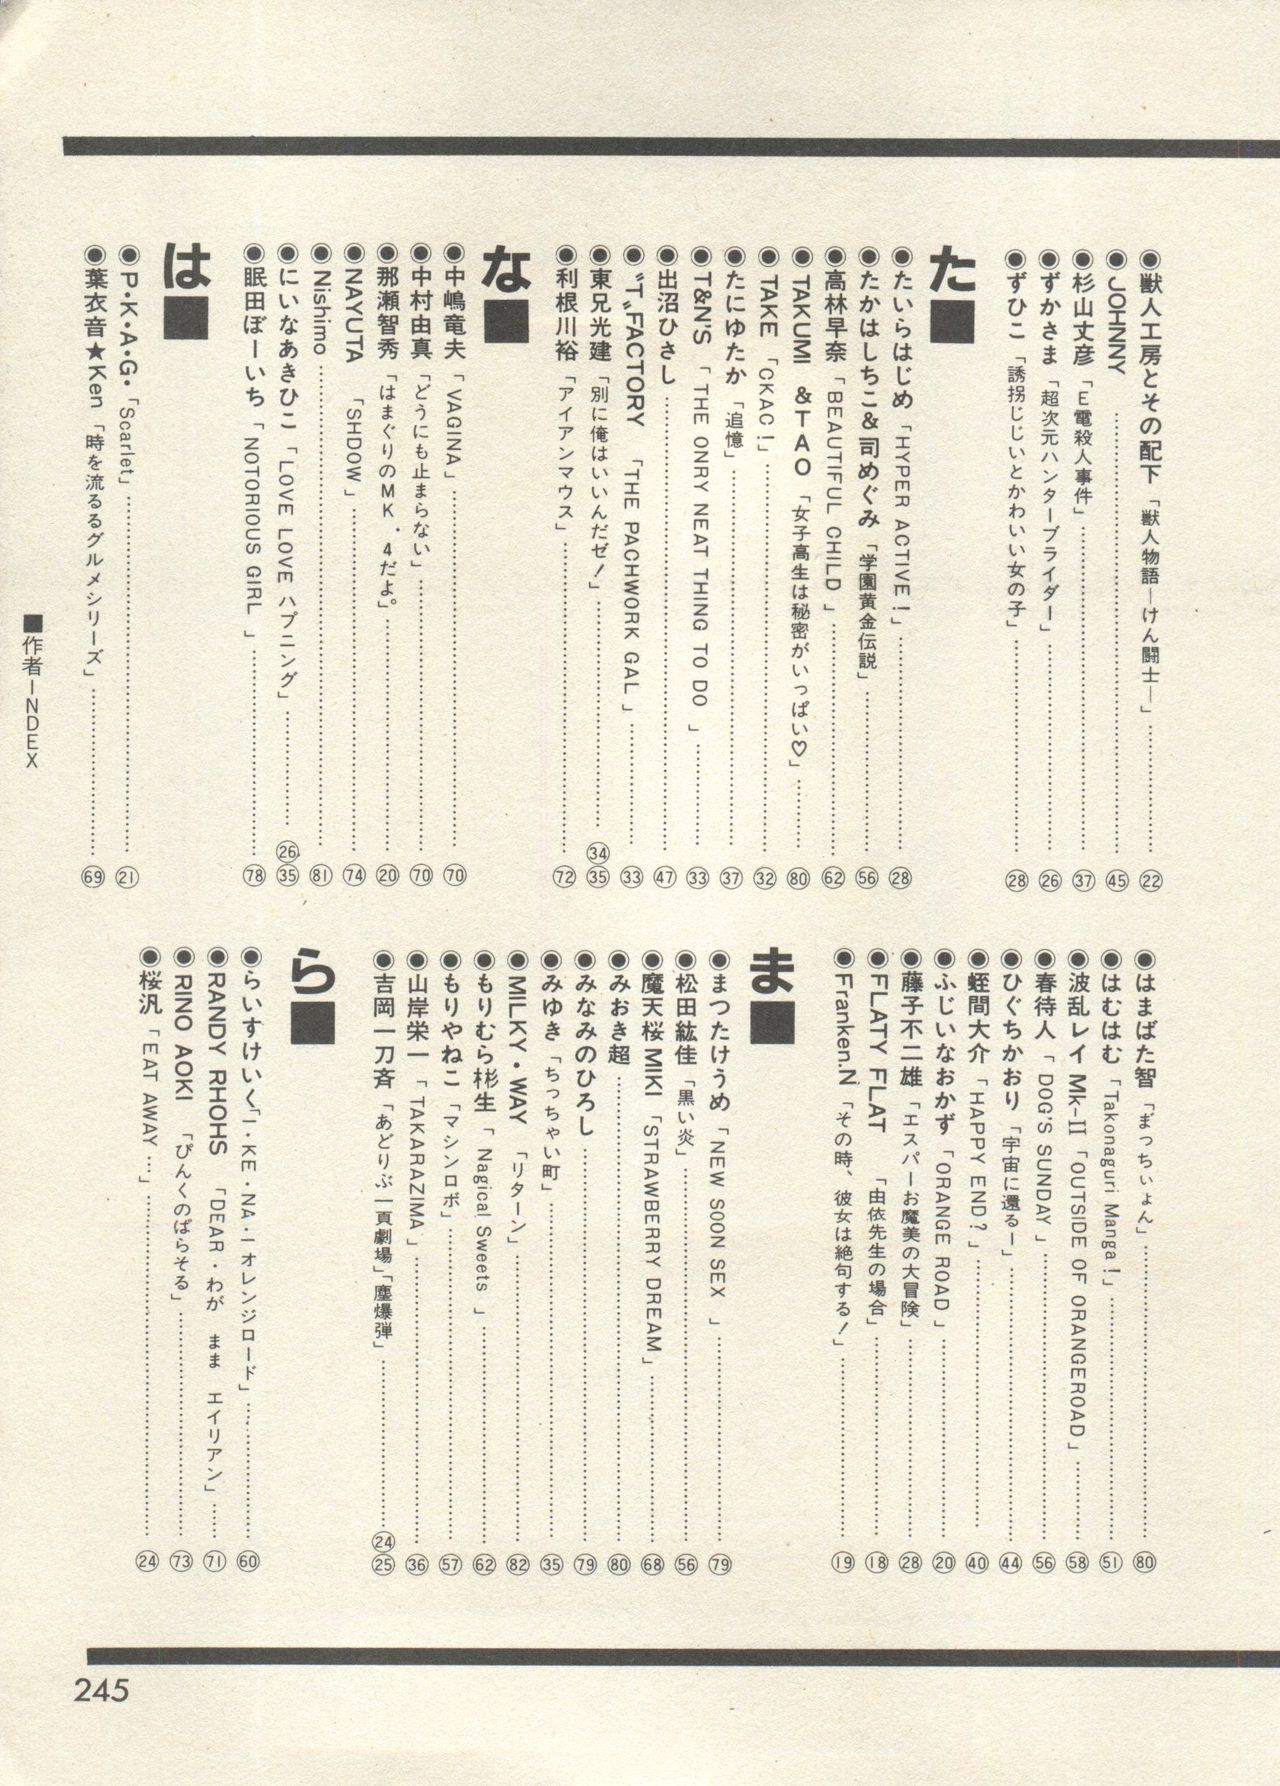 ●獣人工房とその配下「獣人物語―けん闘士―」……㉒
●JOHNNY……㊺
●杉山丈彦「E電殺人事件」……㊲
●ずかさま「超次元ハンターブライダー」……㉖
●ずひこ「誘拐じじいとかわいい女の子」……㉘
た■
●たいらはじめ「HYPER ACTIVE!」……㉘
●たかはしちこ&司めぐみ「学園黄金伝説」……56
●高林早奈「BEAUTIFUL CHILD」……62
●TAKUMI &TAO「女子高生は秘密がいっぱい♡」……80
●TAKE「CKAC!」……㉜
●たにゆたか「追憶」……㊲
●T&N'S「THE ONRY NEAT THING TO DO」……㉝
●出沼ひさし……㊼
●〝T〟FACTORY「THE PACHWORK GAL」……㉝
●東兄光建「別に俺はいいんだゼ!」……㉞㉟
●利根川裕「アイアンマウス」……72
な■
●中嶋竜夫「VAGINA」……70
●中村由真「どうにも止まらない」……70
●那瀬智秀「はまぐりのMK.4だよ。」……⑳
●NAYUTA「SHDOW」……74
●Nishimo……81
●にいなあきひこ「LOVE LOVE ハプニング」……㉖㉟
●眠田ぼーいち「NOTORIOUS GIRL」……78
は■
●P・K・A・G・「Scarlet」……㉑
●葉衣音★Ken「時を流るるグルメシリーズ」……69
●はまばた智「まっちぃょん」……80
●はむはむ「Takonaguri Manga!」……51
●波乱レイMk-II「OUTSIDE OF ORANGEROAD」……58
●春待人「DOG'S SUNDAY」……56
●ひぐちかおり「宇宙に還るー」……㊹
●蛭間大介「HAPPY END?」……㊵
●ふじいなおかず「ORANGE ROAD」……⑳
●藤子不二雄「エスパーお魔美の大冒険」……㉘
●FLATY FLAT「由依先生の場合」……⑱
●Franken.N「その時、彼女は絶句する!」……⑲
ま■
●まつたけうめ「NEW SOON SEX」……79
●松田紘佳「黒い炎」……56
●魔天桜MIKI「STRAWBERRY DREAM」……68
●みおき超……80
●みなみのひろし……79
●みゆき「ちっちゃい町」……㉟
●MILKY・WAY「リターン」……82
●もりむら彬生「Nagical Sweets」……62
●もりやねこ「マシンロボ」……57
●山岸栄一「TAKARAZIMA」……㊱
●吉岡一刀斉「あどりぶ一頁劇場」「塵爆弾」……㉔㉕
ら■
●らいすけいく「I・KE・NA・Iオレンジロード」……60
●RANDY RHOHS「DEAR・わが まま エイリアン」……71
●RINO AOKI「ぴんくのぱらそる」……73
●桜汎「EAT AWAY…」……㉔
■作者INDEX
245